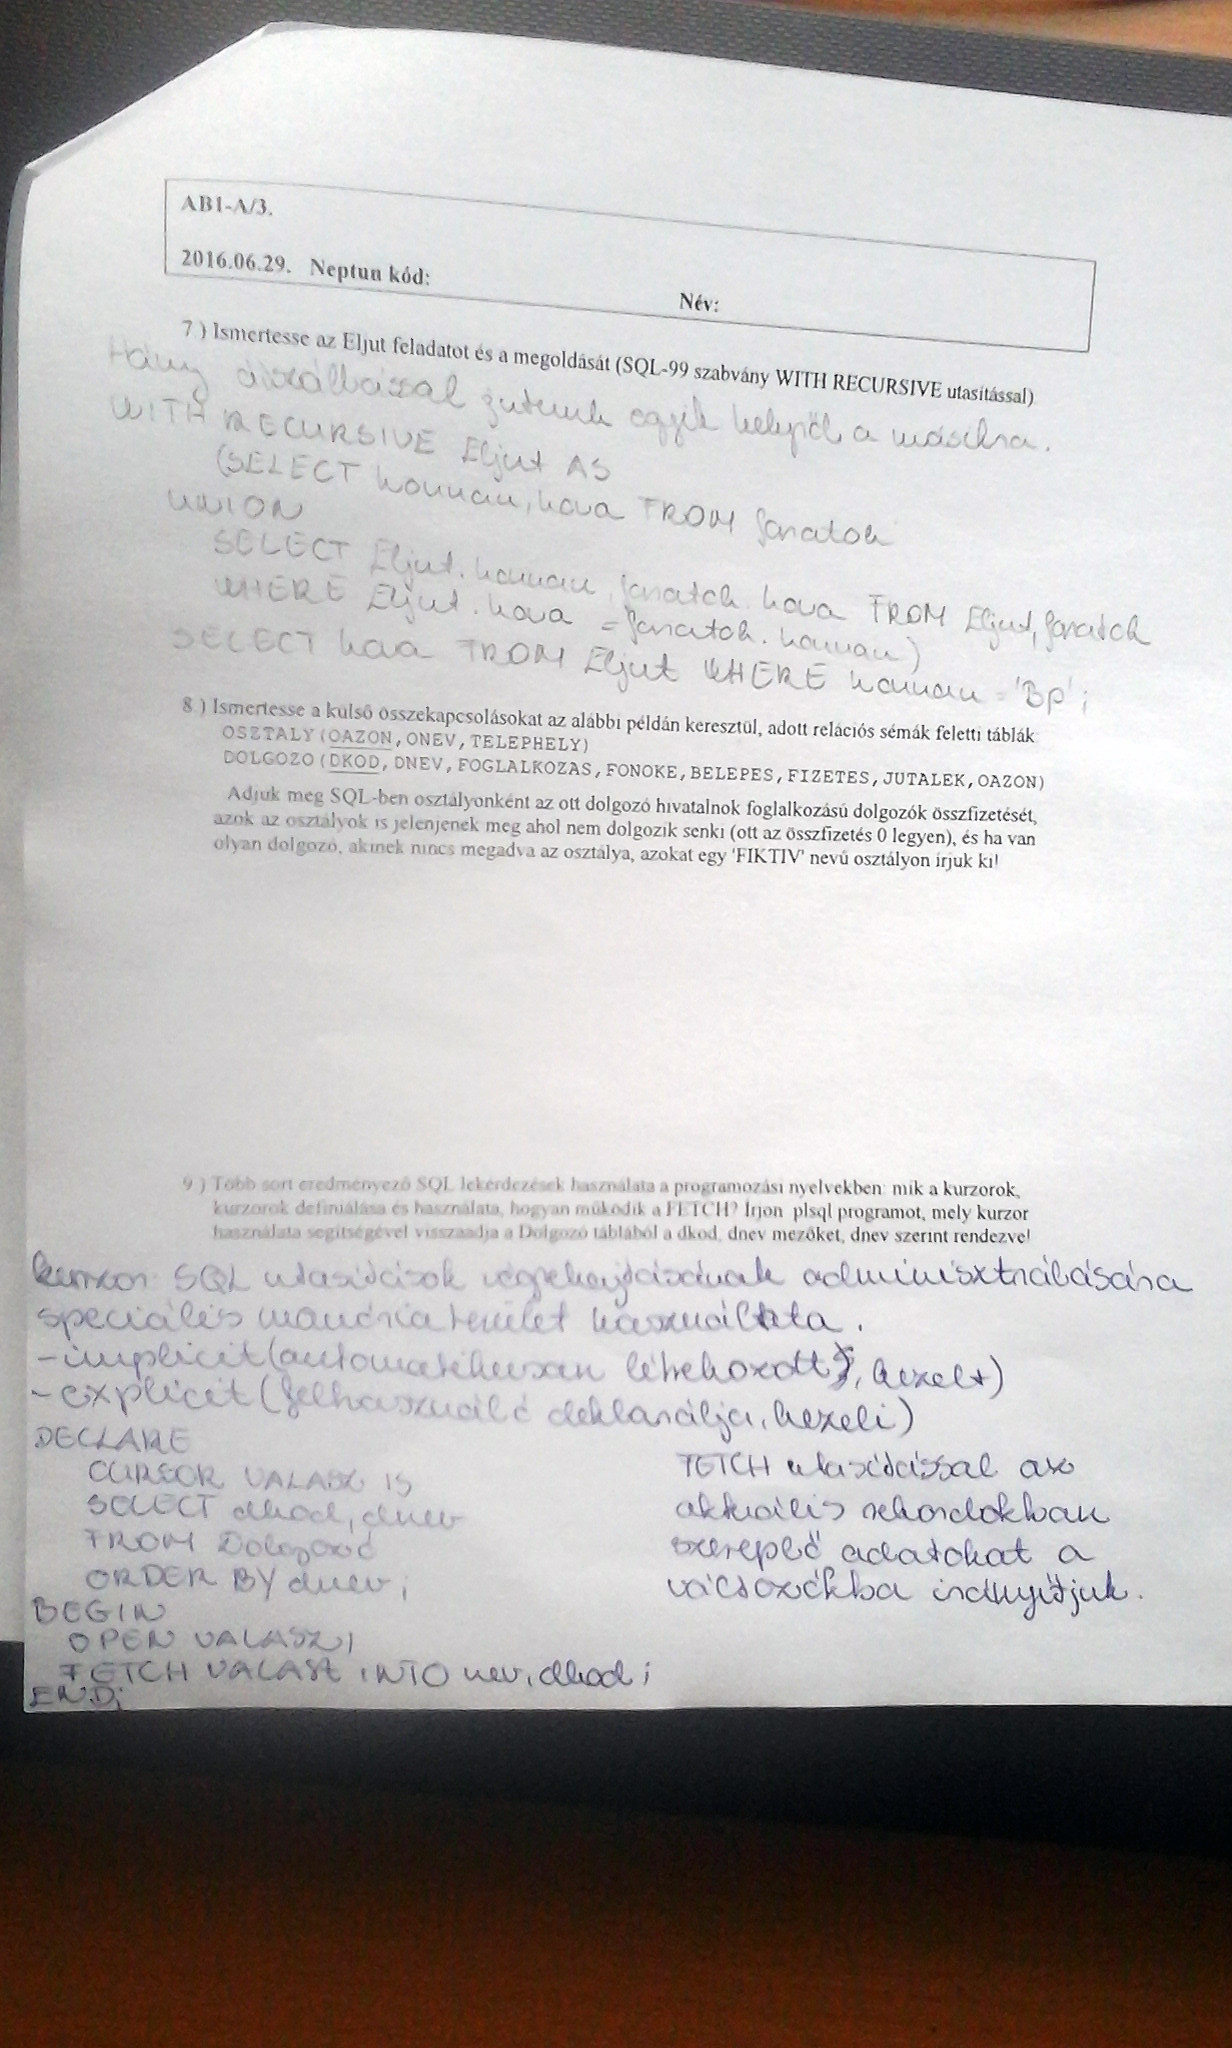 AB1-A/3.
2016.06.29. Neptun kód:
Név:
7 ) Ismertesse az Eljut feladatot és a megoldását (SQL-99 szabvány WITH RECURSIVE utasítással)
Hány átszállással jutunk egyik helyről a másikra.
WITH RECURSIVE Eljut AS
(SELECT honnan, hova FROM Jaratok
UNION
SELECT Eljut.honnan, Jaratok.hova FROM Eljut, Jaratok
WHERE Eljut.hova = Jaratok.honnan)
SELECT hova FROM Eljut WHERE honnan = 'Bp';
8 ) Ismertesse a külső összekapcsolásokat az alábbi példán keresztül, adott relációs sémák feletti táblák
OSZTALY(OAZON, ONEV, TELEPHELY)
DOLGOZO(DKOD, DNEV, FOGLALKOZAS, FONOKE, BELEPES, FIZETES, JUTALEK, OAZON)
Adjuk meg SQL-ben osztályonként az ott dolgozó hivatalnok foglalkozású dolgozók összfizetését,
azok az osztályok is jelenjenek meg ahol nem dolgozik senki (ott az összfizetés 0 legyen), és ha van
olyan dolgozó, akinek nincs megadva az osztálya, azokat egy 'FIKTIV' nevű osztályon írjuk ki!
9 ) Több sort eredményező SQL lekérdezések használata a programozási nyelvekben: mik a kurzorok,
kurzorok definiálása és használata, hogyan működik a FETCH? Írjon plsql programot, mely kurzor
használata segítségével visszaadja a Dolgozó táblából a dkod, dnev mezőket, dnev szerint rendezve!
kurzor: SQL utasítások végrehajtásának adminisztrálására
speciális memória terület használata.
-implicit(automatikusan létrehozott, kezelt)
-explicit(felhasználó deklarálja, kezeli)
DECLARE
CURSOR VALASZ IS
SELECT dkod, dnev
FROM Dolgozó
ORDER BY dnev;
BEGIN
OPEN VALASZ;
FETCH VALASZ INTO nev, dkod;
END;
FETCH utasítással az
aktuális rekordokban
szereplő adatokat a
változókba irányítjuk.